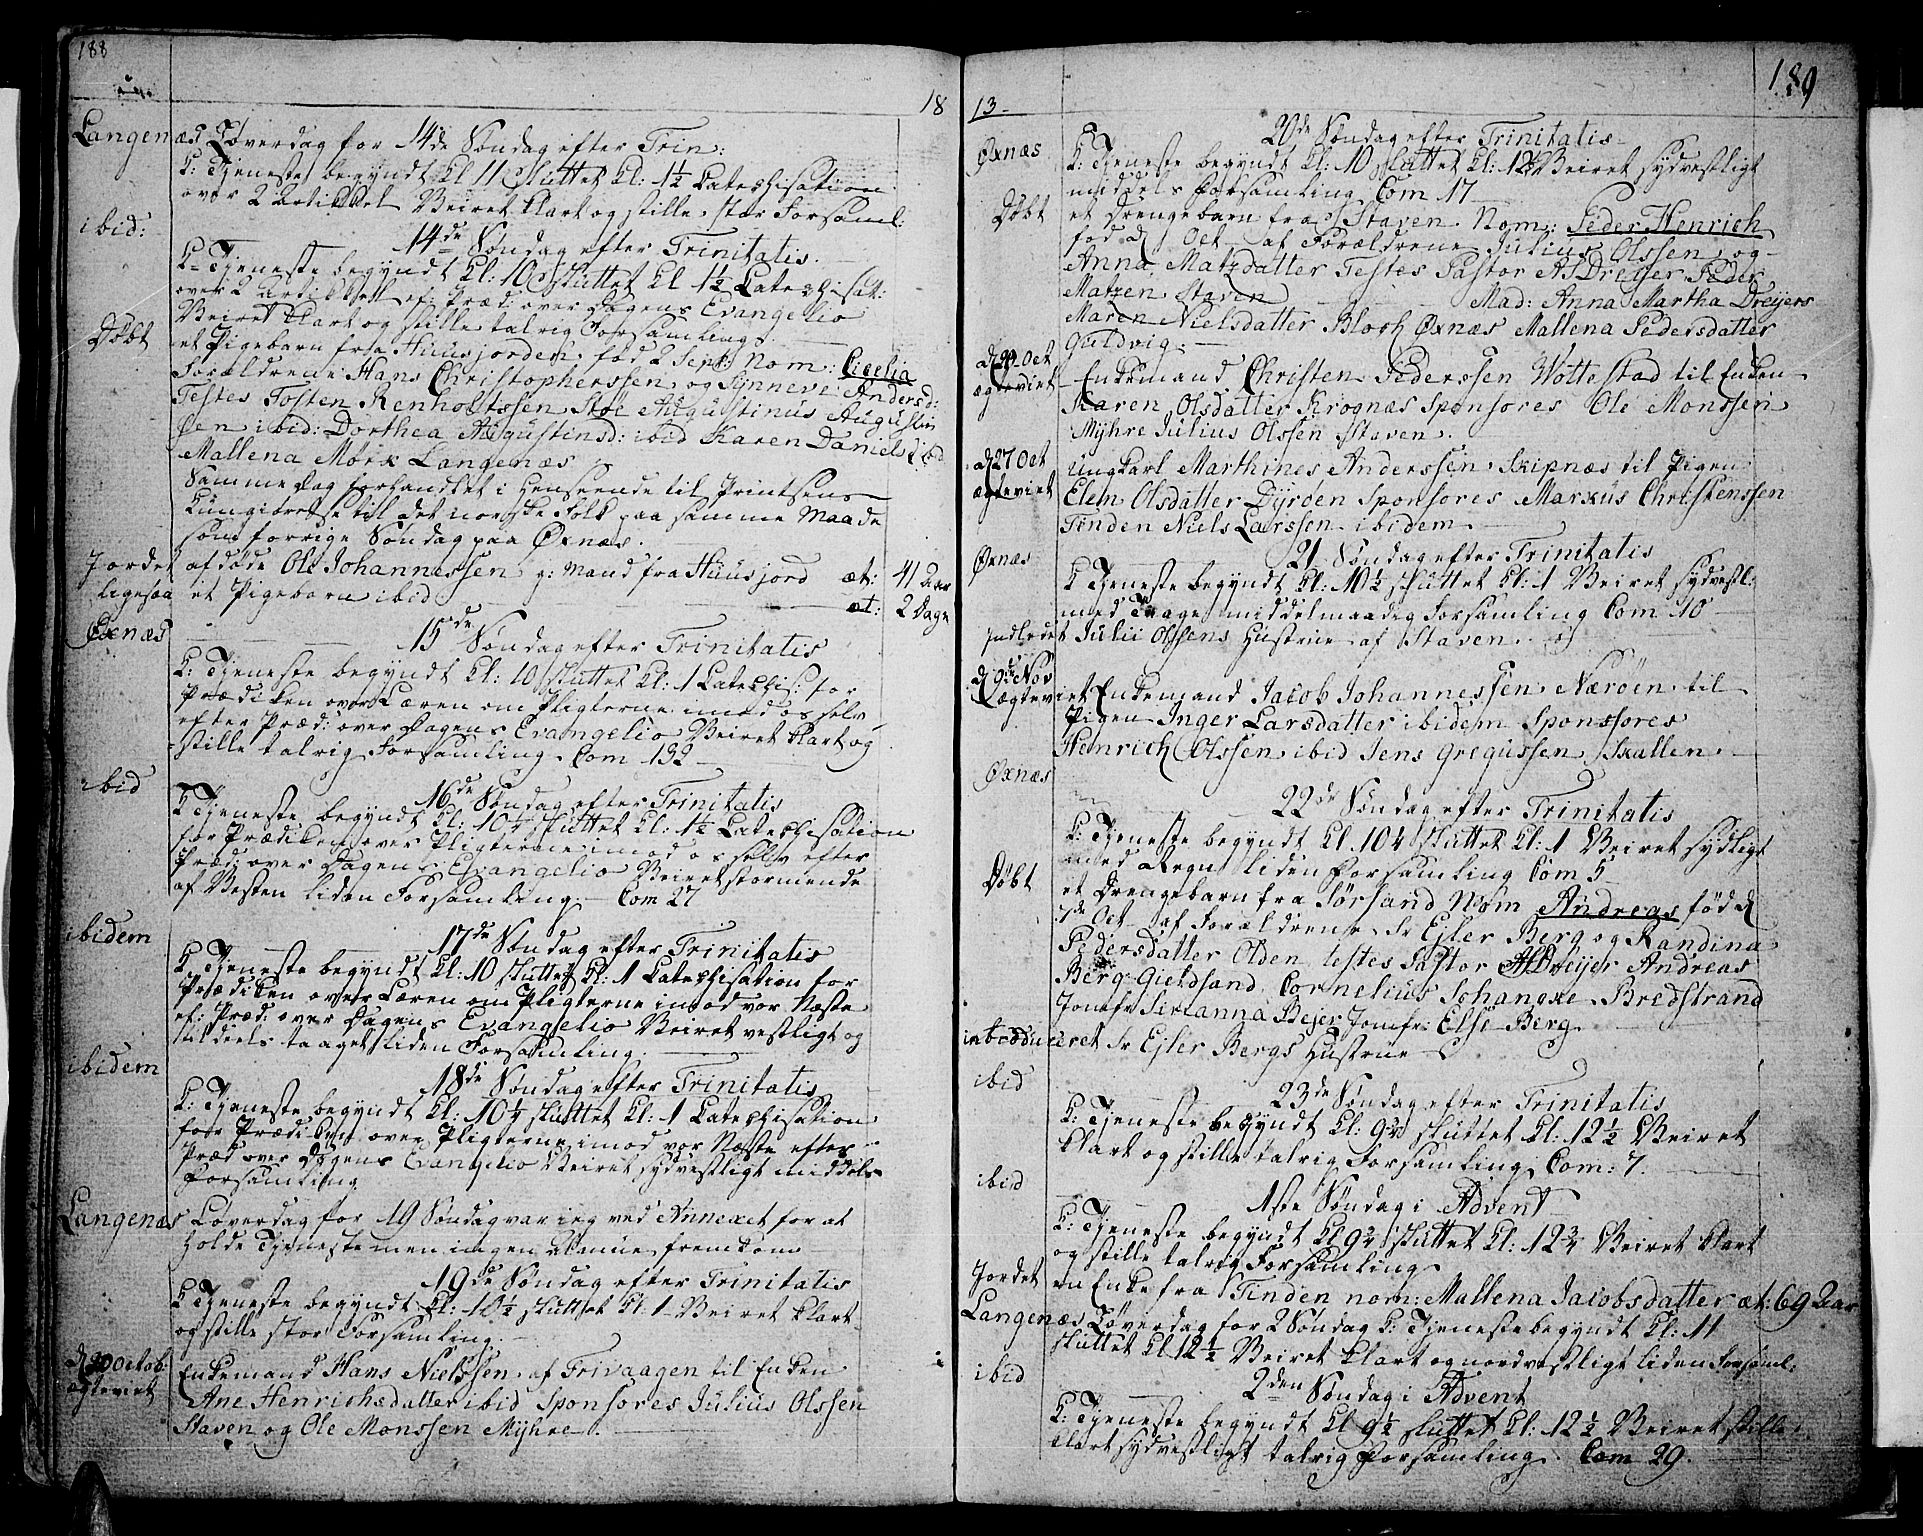 188
18
Langenæs Løverdag for 14de Søndag efter Trin:
K: Tjeneste begyndt Kl 11 sluttet Kl: 1½ Catechisation
over 2 Artikkel Veiret klart og stille stor Forsaml:
ibid: 14de Søndag efter Trinitatis.
K: Tjeneste begyndt Kl: 10 sluttet Kl 1½ Catechisat:
over 2 Artikkel ef: Præd: over Dagens Evangelio
Veiret klart og stille talrig Forsamling.
Døbt et Pigebarn fra Huusjorden fød 2 Sept: Nom: Cicelia
Forældrene Hans Christopherssen og Synneve Andersd:
Testes Tosten Renholtssen Støe Augustinus Augustin
sen ibid: Dorthea Augustinsd: ibid Karen Daniels ibid
Mallena Mørk Langenæs
Samme Dag forhandlet i Henseende til Printsens
Kungiørelse til det norske Folk paa samme Maade
som forrige Søndag paa Øxnæs.
Jordet afdøde Ole Johannessen g: Mand fra Huusjord æt: 41 Aar
ligesaa et Pigebarn ibid æt: 2 Dage
Øxnæs 15de Søndag efter Trinitatis
K: Tjeneste begyndt Kl: 10 sluttet Kl: 1 Catechis: for
Prædiken over Læren om Pligterne imod os selv
efter Præd: over Dagens Evangelio Veiret klart og
stille talrig Forsamling Com 132
ibid 16de Søndag efter Trinitatis
K Tjeneste begyndt Kl: 10½ sluttet Kl: 1½ Catechisation
for Prædiken over Pligterne imod os selv efter
Præd: over Dagens Evangelio Veiret stormende
af Vesten liden Forsamling. Com 27
ibidem 17de Søndag efter Trinitatis
K Tjeneste begyndt Kl: 10 sluttet Kl: 1 Catechisation for
Prædiken over Læren om Pligterne imod vor Næste
ef: Præd: over Dagens Evangelio Veiret vestligt og
tildeels taaget liden Forsamling.
ibidem 18de Søndag efter Trinitatis
K: Tjeneste begyndt Kl: 10½ sluttet Kl: 1 Catechisation
for Prædiken over Pligterne imod vor Næste efter
Præd over Dagens Evangelio Veiret sydvestligt middels
Forsamling
Langenæs Løverdag for 19 Søndag var jeg ved Annexet for at
holde Tjeneste men ingen Almue fremkom
19de Søndag efter Trinitatis
K Tjeneste begyndt Kl: 10½ sluttet Kl: 1 Veiret klart
og stille stor Forsamling.
d 20 Octob Enkemand Hans Nielssen af Trivaagen til Enken
ægteviet Ane Henrichsdatter ibid Sponsores Julius Olssen
Staven og Ole Monssen Myhre.
189
13
20de Søndag efter Trinitatis
Øxnæs K: Tjeneste begyndt Kl: 10 sluttet Kl: 12½ Veiret sydvestligt
middels Forsamling Com 17
Døbt et Drengebarn fra Staven Nom: Peder Henrich
fød d Oct af Forældrene Julius Olssen og
Anna Matzdatter Testes Pastor A Dreyer Peder
Matzen Staven Mad: Anna Martha Dreyers
Maren Nielsdatter Blogh Øxnæs Mallena Pedersdatter
Guldvig.
d 20 Oct Enkemand Christen Pederssen Wottestad til Enken
ægteviet Karen Olsdatter Krognæs Sponsores Ole Monssen
Myhre Julius Olssen Staven.
d 27 Oct Ungkarl Marthines Anderssen Skipnæs til Pigen
ægteviet Elen Olsdatter Dyrøen Sponsores Markus Christenssen
Tinden Niels Larssen ibidem
21 Søndag efter Trinitatis
Øxnæs K Tjeneste begyndt Kl: 10½ sluttet Kl: 1 Veiret sydvestl:
med Taage middelmaadig Forsamling Com 10
Indledet Julii Olssens Hustrue af Staven.
d 9de Nov
Ægteviet Enkemand Jacob Johannessen Nærøen til
Pigen Inger Larsdatter ibidem Sponsores
Henrich Olssen ibid Jens Gregussen Skallen
Øxnæs 22de Søndag efter Trinitatis
K: Tjeneste begyndt Kl. 10¼ sluttet Kl: 1 Veiret sydligt
med Regn liden Forsamling Com 5
Døbt et Drengebarn fra Sørsand Nom Andreas fød d
7de Oct af Forældrene Sr Ejler Berg og Randina
Pedersdatter Olden testes Pastor A Dreijer Andreas
Berg Gieldsand Cornelius Schancke Bredstrand
Jomfr Sirianna Bejer Jomfr: Else Berg
introduceret Sr Ejler Bergs Hustrue
ibid 23de Søndag efter Trinitatis
K: Tjeneste begyndt Kl: 9¾ sluttet Kl: 12½ Veiret
klart og stille talrig Forsamling Com: 7.
ibid 1ste Søndag i Advent
K: Tjeneste begyndt Kl 9¾ sluttet Kl: 12¾ Veiret klart
og stille talrig Forsamling
Jordet en Enke fra Tinden nom: Mallena Jacobsdatter æt: 69 Aar
Langenæs Løverdag for 2 Søndag K: Tjeneste begyndt Kl: 11
sluttet Kl 12½ Veiret klart og nordvestligt liden Forsaml:
ibid 2den Søndag i Advent
K: Tjeneste begyndt Kl 9½ sluttet Kl: 12½ Veiret stille
klart sydvestligt talrig Forsamling Com 29.